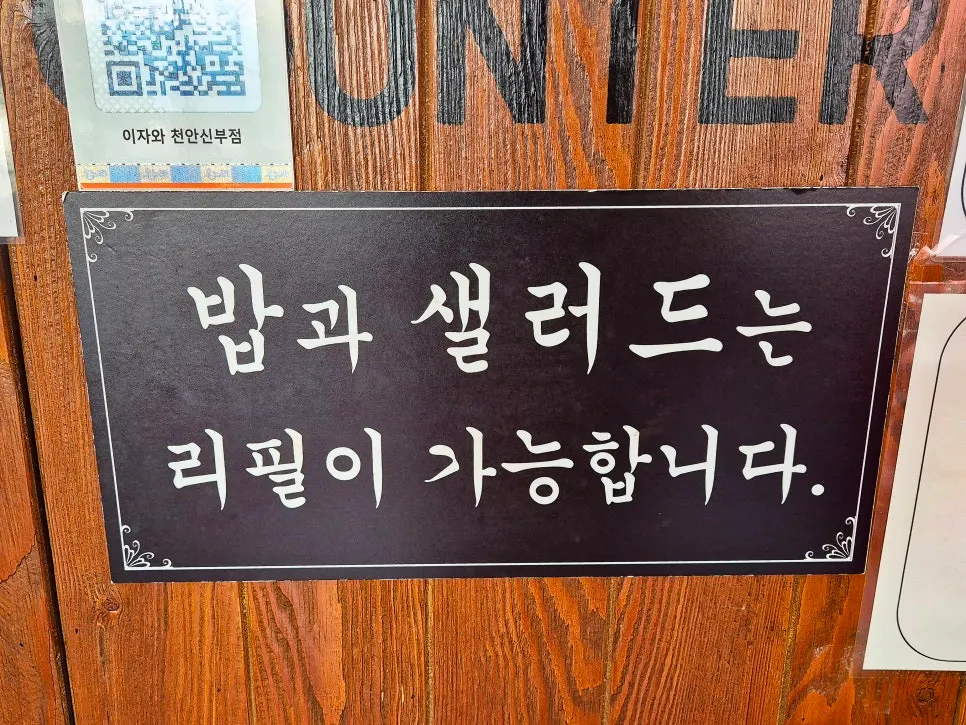 COUNTER
이자와 천안신부점
밥과 샐러드는
리필이 가능합니다.